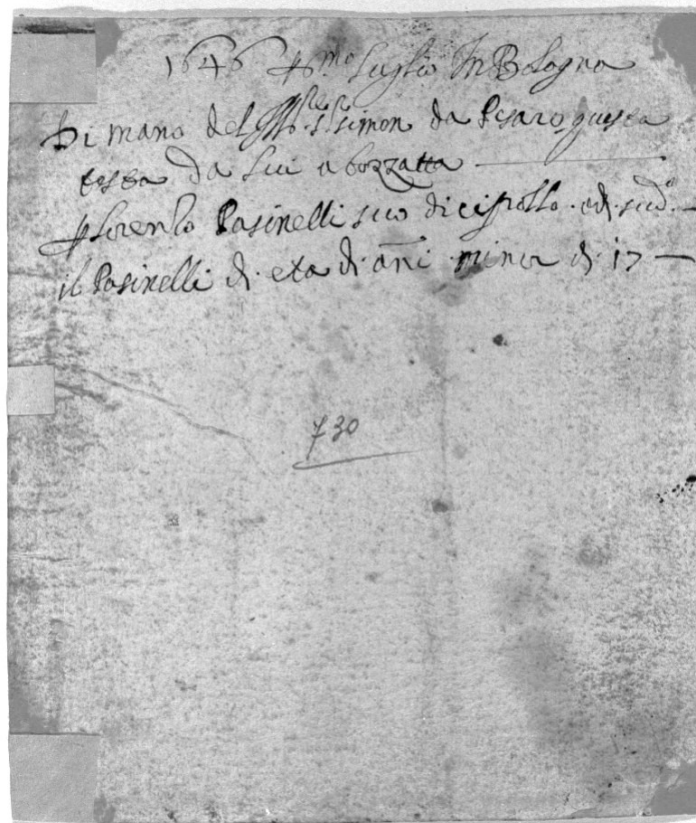 1646 p.mo Luglio In Bologna
Di mano del Ill.re S.r Simon da Pesaro questa
testa da lui abozzatta
p Lorenzo Pasinelli suo dicipollo
il Pasinelli di eta di ani minor di 17
730